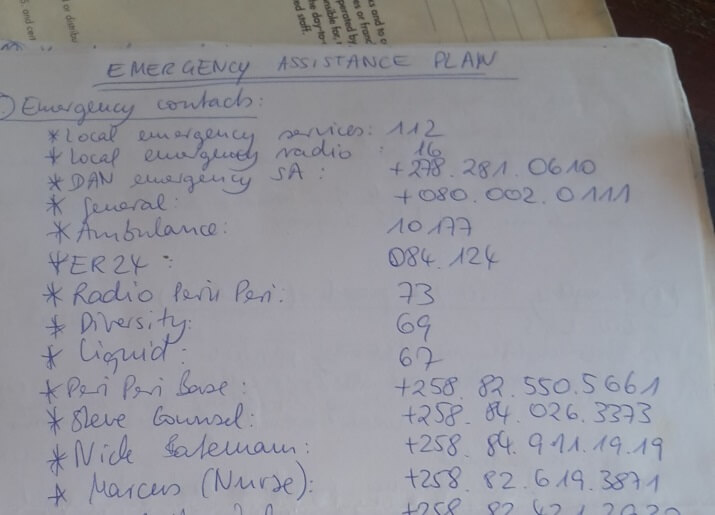 EMERGENCY ASSISTANCE PLAN
Emergency contacts:
* Local emergency services: 112
* Local emergency radio : 16
* DAN emergency SA : +278.281.0610
* General: +080.002.0111
* Ambulance: 10177
* ER24 : 084.124
* Radio Perii Peri: 73
* Diversity: 69
* Liquid: 67
* Peri Peri Base: +258.82.550.5661
* Steve Counsel: +258.84.026.3373
* Nick Batemam: +258.84.911.19.19
* Marcus (Nurse): +258.82.619.3871